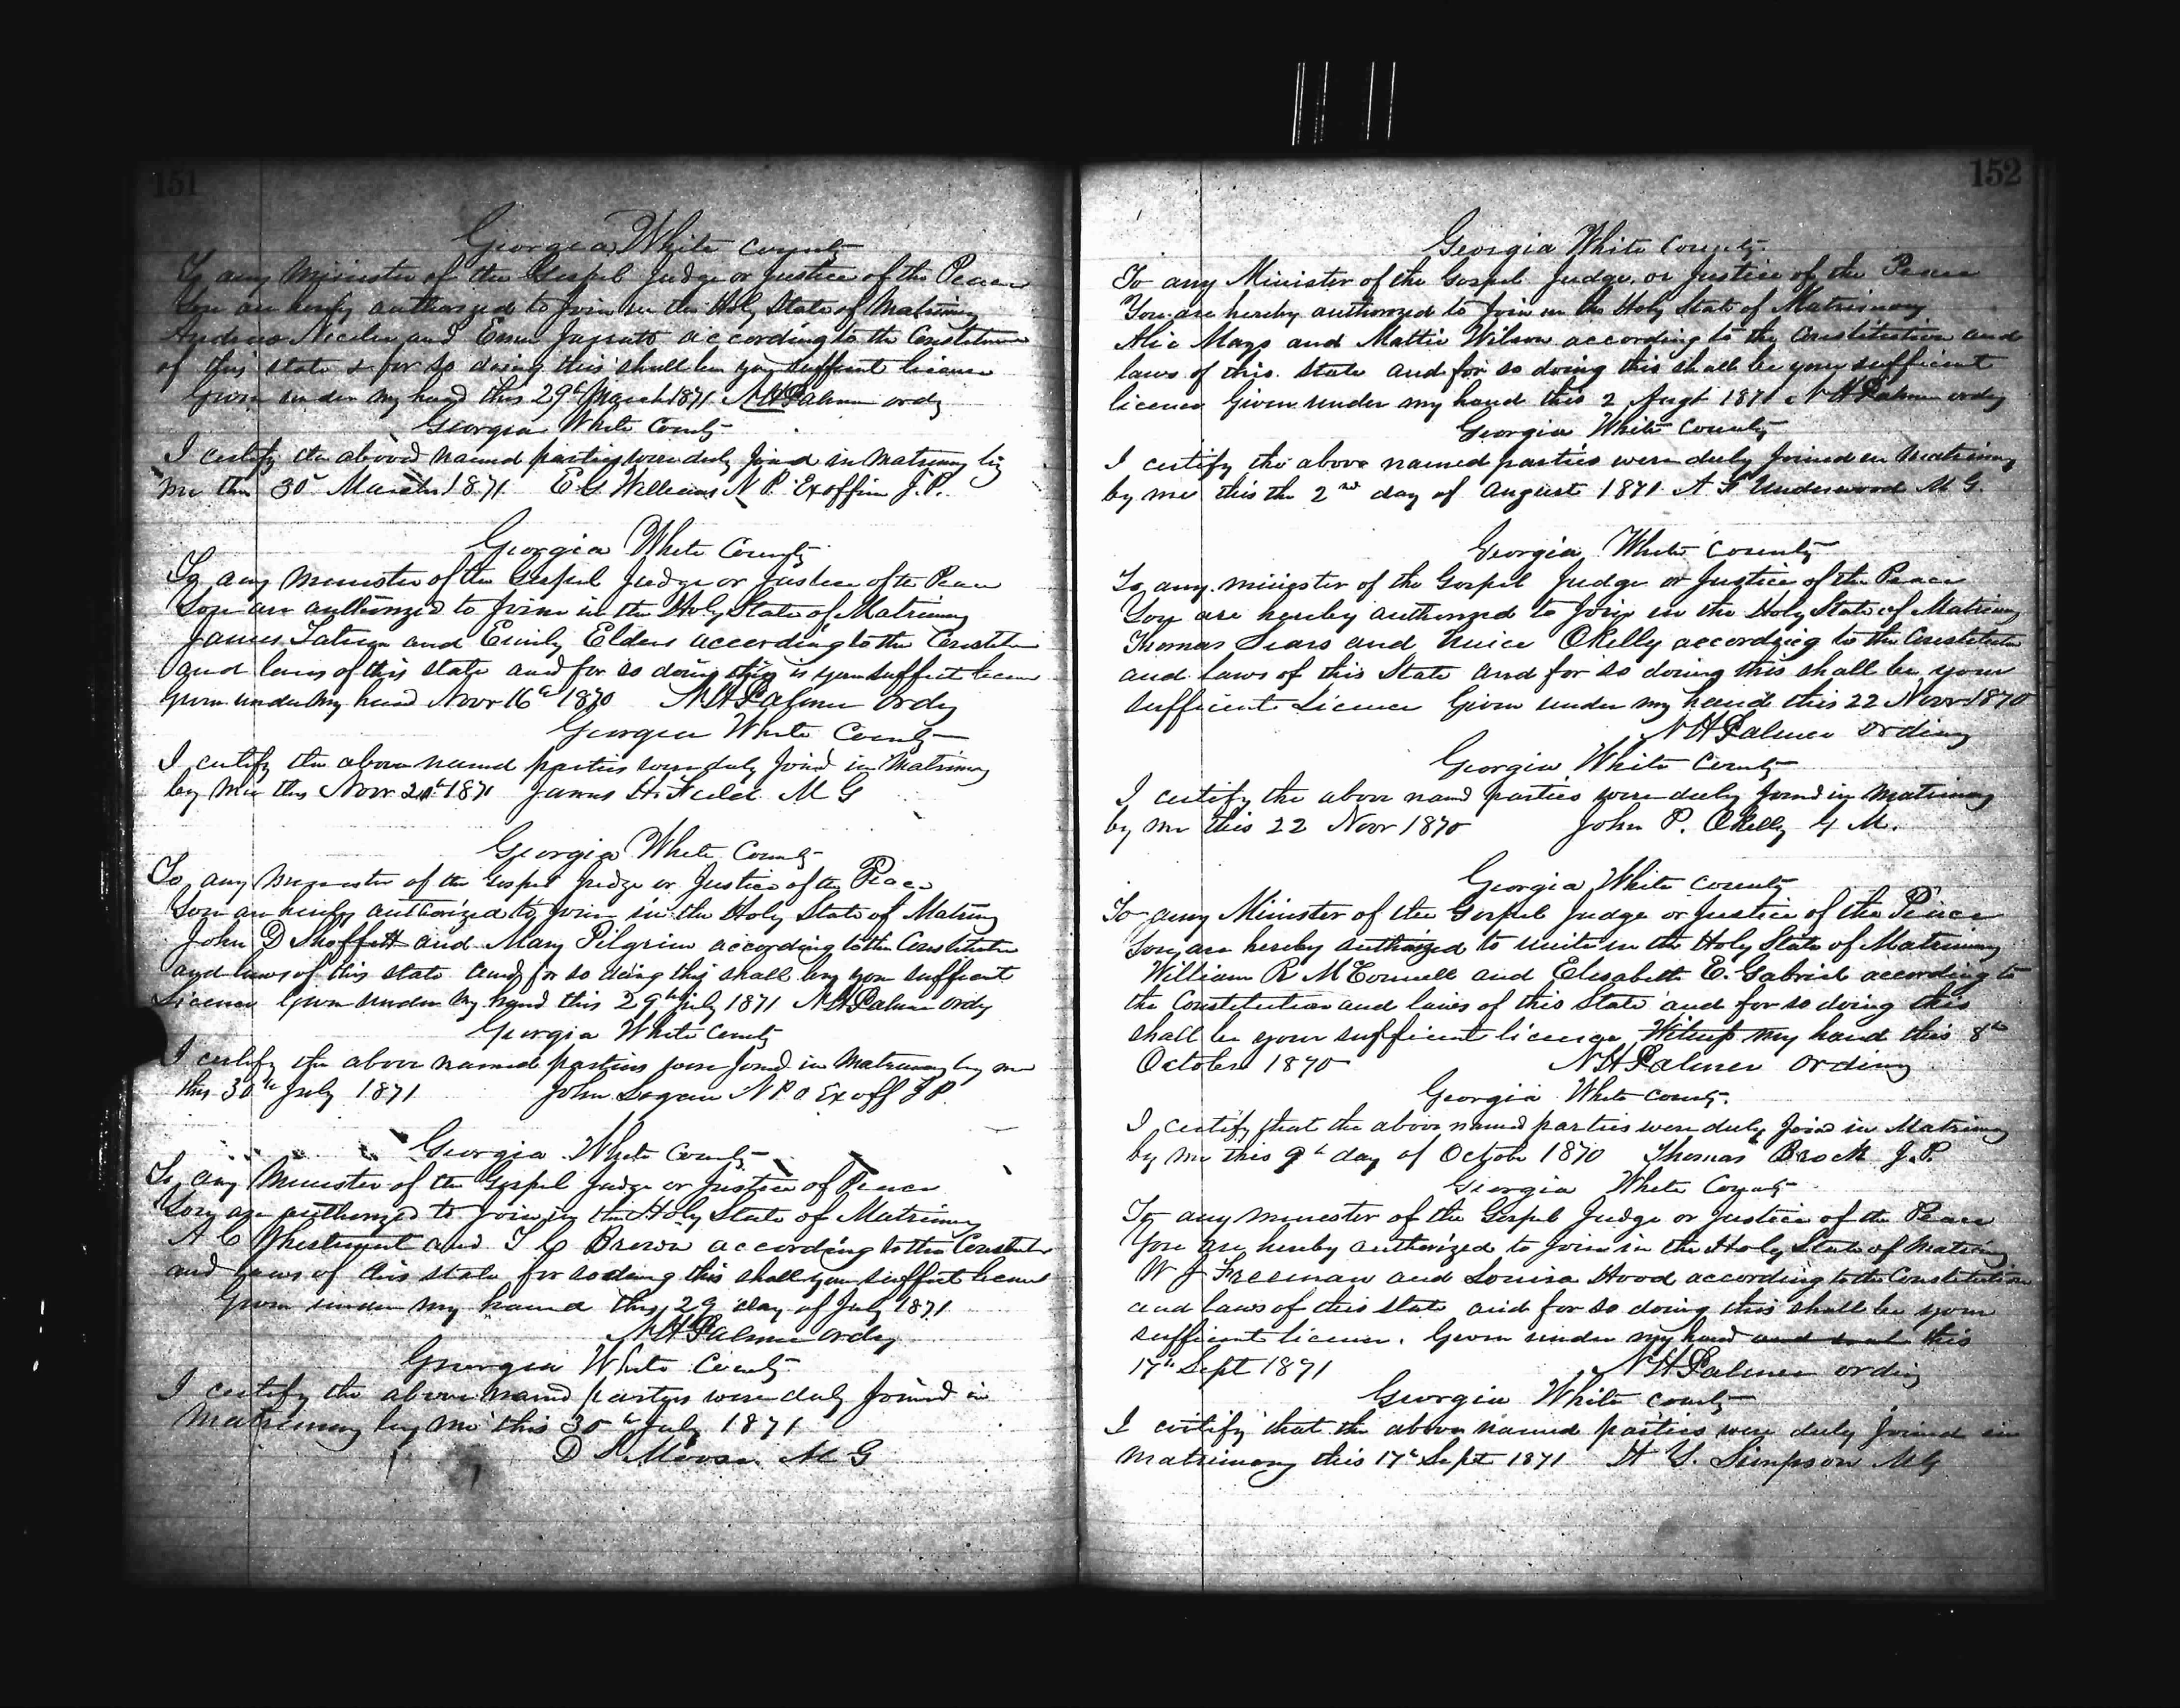 151
Georgia White County
To any Minister of the Gospel Judge or Justice of the Peace
You are hereby authorized to Join in the Holy State of Matrimony
and according to the Constitution
of this state & for so doing this shall be your suffient licence
Given under my hand this 29th March 1871 N H Palmer ordy
Georgia White County
I certify the above named parties were duly Joind in Matrimony by
me this 30th March 1871 E G Williams N P. Ex offico J. P.
Georgia White County
To any Minister of the Gospel Judge or Justice of the Peace
You are authorized to Joine in the Holy State of Matrimony
James and Emily Elders according to the
and laws of this state and for so doing this is your
given under my hand Novr 16th 1870 N H Palmer Ordy
Georgia White County
I certify the above named parties were duly Joind in Matrimony
by Me this Novr 1871 James H. M G
Georgia White County
To any Minister of the Gospel Judge or Justice of the Peace
You are hereby authorized to join in the Holy State of Matrimony
John D and Mary Pilgrim according to the Constitution
and laws of this state and for so doing this shall be your suffient
Licence Given under my hand this 29th July 1871 N H Palmer ordy
Georgia White County
I certify the above named parties were Joind in Matrimony by me
this 30th July 1871 John Logan N P & Ex off J P.
Georgia White County
To any Minister of the Gospel Judge or Justice of Peace
You are authorized to Join in the Holy State of Matrimony
A C and T C Brown according to the
and Laws of this state for so doing this shall your
Given under my hand this 29 day of July 1871
N H Palmer ordy
Georgia White County
I certify the above named partys were duly Joind in
Matrimony by me this 30th July 1871
D Moore. M G
152
Georgia White County
To any Minister of the Gospel Judge, or Justice of the Peace
You are hereby authorized to Join in the Holy State of Matrimony
Mays and Mattie Wilson according to the Constitution and
laws of this state and for so doing this shall be your sufficient
licence Given under my hand this 2 Augt 1871 N H Palmer ordy
Georgia White County
I certify the above named parties were duly Joined in Matrimony
by me this the 2nd day of August 1871 A F Underwood M G.
Georgia White County
To any minister of the Gospel Judge or Justice of the Peace
You are hereby authorized to Join in the Holy State of Matrimony
Thomas Sears and Okelly according to the Constitution
and laws of this State and for so doing this shall be your
sufficient Licence Given under my hand this 22 Novr 1870
N H Palmer Ordiny
Georgia White County
I certify the above namd parties were duly Joind in Matrimony
by me this 22 Novr 1870 John P. Okelly G M.
Georgia White County
To any Minister of the Gospel Judge or Justice of the Peace
You are hereby authorized to unite in the Holy State of Matrimony
William R McConnell and Elisabeth E. Gabriel according to
the Constitution and laws of this State and for so doing this
shall be your sufficient licence Witness my hand this 8th
October 1870 N H Palmer Ordiny
Georgia White County.
I certify that the above named parties were duly Joind in Matrimony
by me this 9th day of October 1870 Thomas Brock J. P.
Georgia White County
To any minester of the Gospel Judge or Justice of the Peace
You are hereby authorized to Join in the Holy State of Matrimony
W J Freeman and Louisa Hood according to the Constitution
and laws of this State and for so doing this shall be your
sufficient licence. Given under my hand and seal this
17th Sept 1871 N H Palmer ordiny
Georgia White County
I certify that the above named parties were duly Joined in
Matrimony this 17th Sept 1871 H Y. Simpson M G